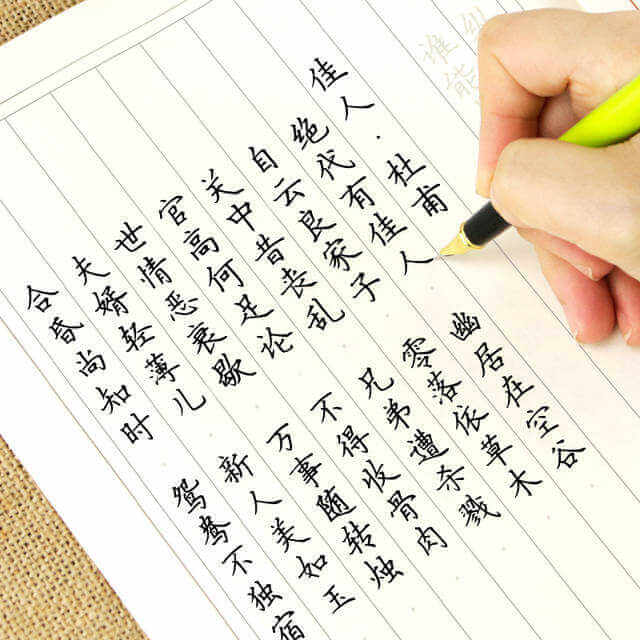 纠
谁能
佳人·杜甫
绝代有佳人 幽居在空谷
自云良家子 零落依草木
关中昔丧乱 兄弟遭杀戮
官高何足论 不得收骨肉
世情恶衰歇 万事随转烛
夫婿轻薄儿 新人美如玉
合昏尚知时 鸳鸯不独宿